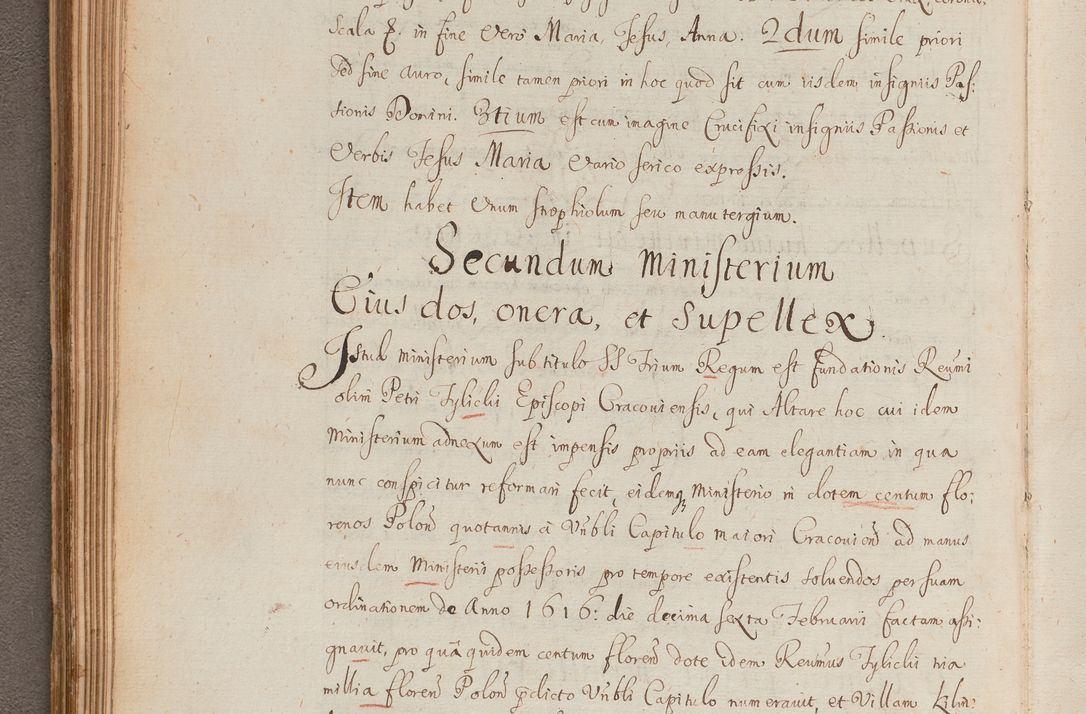 Scala &. in fine Vero Maria, Jesus, Anna. 2dum simile priori
sed sine auro, simile tamen priori in hoc quod sit cum iisdem insigniis Pas:
sionis Domini. 3tium est cum imagine Crucifixi insigniis Passionis et
Verbis Jesus Maria Vario serico expressis.
Item habet Unum strophiolum seu manutergium.
Secundum Ministerium
Eius dos, onera, et Supellex
Istud Ministerium sub titulo SS Trium Regum est fundationis Reumi
olim Petri Tylicki Episcopi Cracoviensis, qui Altare hoc cui idem
Ministerium adnexum est impensis propriis ad eam elegantiam in qua
nunc conspicitur reformari fecit, eidemq Ministerio in dotem centum flo:
renos Polon quotannis à Vnbli Capitulo maiori Cracovien ad manus
eiusdem Ministerii possessoris pro tempore existentis solvendos per suam
ordinationem de Anno 1616: die decima sexta Februarii factam assi:
gnavit, pro quâ quidem centum floren dote idem Reumus Tylicki tria
millia floren Polon pdicto Vnbli Capitulo numeravit, et Villam Klin: